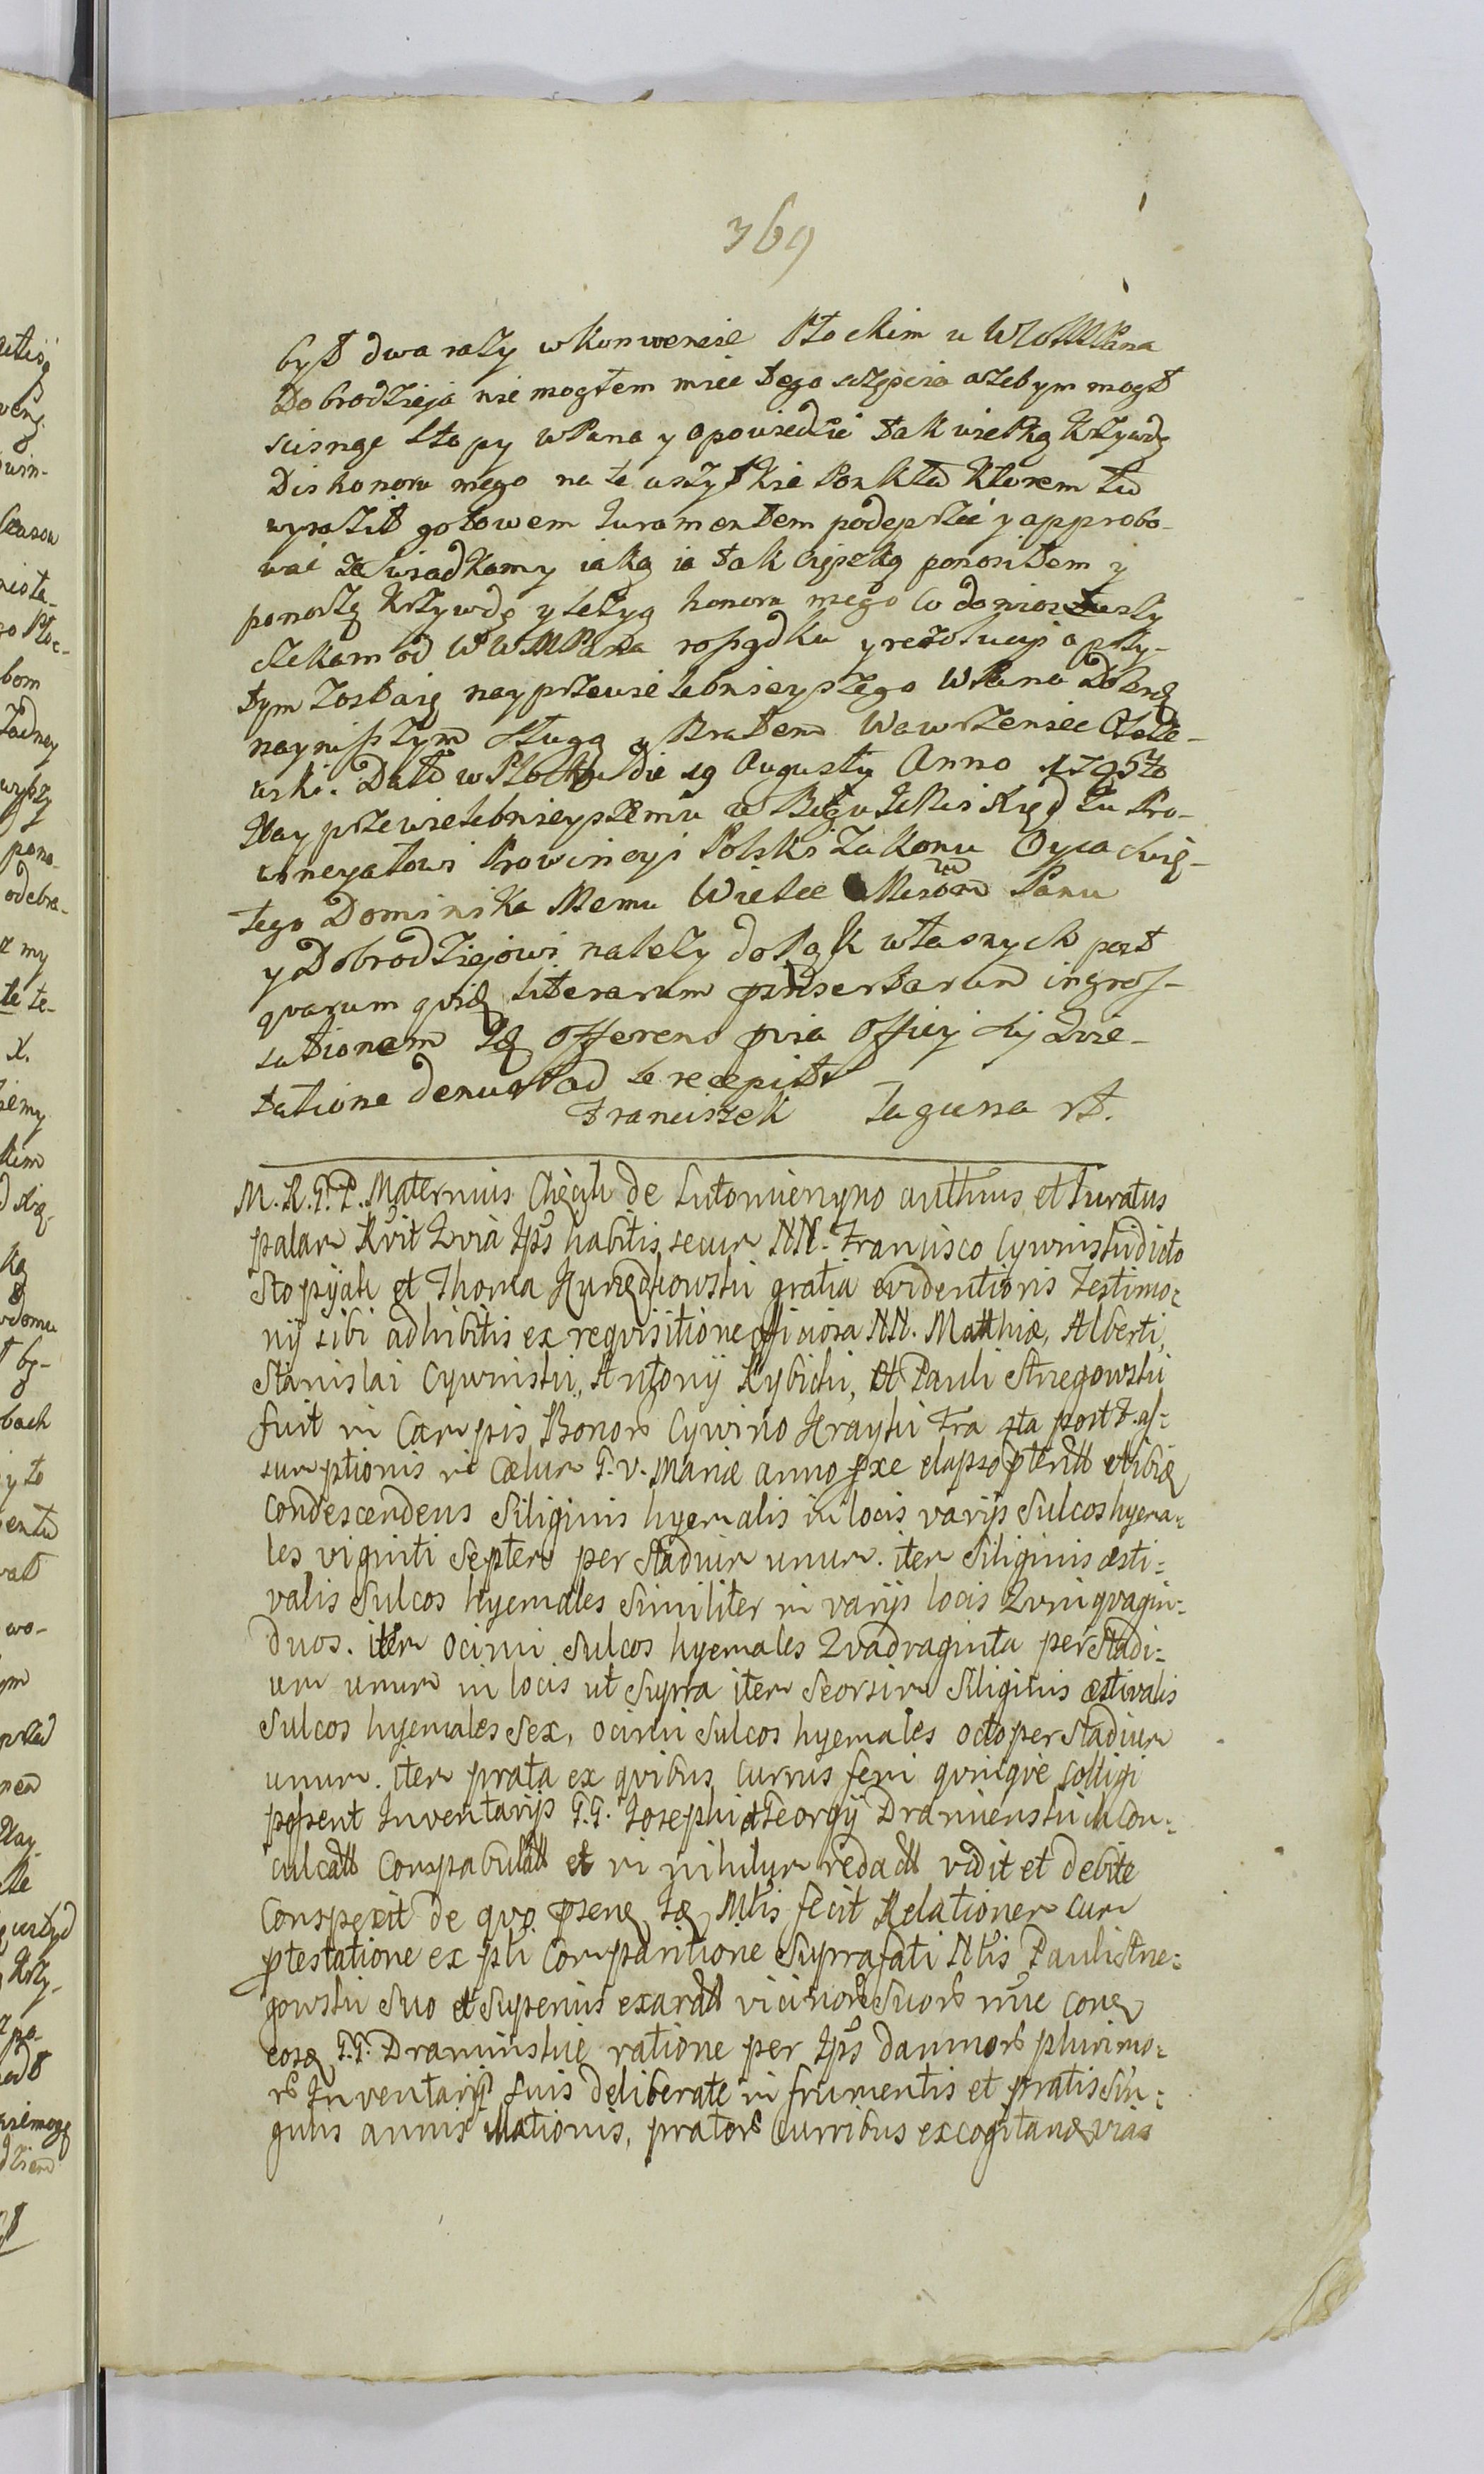 369
był dwa razy w Konwencie Płockim u WWMPana
Dobrodzieja nie mogłem miec tego sczęscia azebym mogł
scisnąc stopy wPana y opowiedzie tak wielką Krzywdę
Dishonoru mego na te wszystkie Ponkta Ktorem tu
wyraził gotowem Iuramentem podeprzec y approbo-
wac za swiadkamy iaką ia tak cięszką ponosiłem y
ponoszę Krzywdę y lezyą honoru mego Co doniozszy
czekam od WWMPana rosządku y rezolucyi a przy-
tym zostaię nayprzewielebnieyszego WPana Dobrodz
naynisszym sługą y Bratem Wawrzeniec
wski. Dat w Płocku die 19 Augusty Anno 1795to
Nayprzewielebnieyszemu w Bogu Xdzu Pro-
wincyałowi Prowincyi Polski Zakonu Oyca Swię-
tego Dominika Memu Wielce Panu
y Dobrodziejowi nalezy do Rąk własnych post
quarum quid literarum pinsertarum ingros-
sationem Id offerens pria Officy sij Quie-
tatione denuo ad se recepit
Franciszek Laguna
M. R. G. P. Maternus de Lutomierzyno authus et Iuratus
palam Rvit Qvia Ips habitis secum NN. Francisco Cywinski dicto
Stopyak et Thoma gratia evidentioris Testimo=
nij sibi adhibitis ex reqvisitione officiosa NN. Matthiæ, Alberti,
Stanislai Cywinski, Antonij Rybicki, et Pauli Strzegowski
fuit in Campis Bonor Cywino Fra 4ta post F. as=
sumptionis in Cælum B. V. Mariæ anno pxe elapso ptendtt et ibiq
Condescendens Siliginis hyemalis in locis varijs Sulcos hyema=
les viginti Septem per Stadium unum. item Siliginis æsti=
valis Sulcos hyemales Similiter in varijs locis Qvinqvagin=
duos. item ocimi Sulcos hyemales Qvadraginta per Stadi=
um unum in locis ut Supra item Seorsim Siliginis æstivalis
Sulcos hyemales Sex, ocimi Sulcos hyemales octo per Stadium
unum. item prata ex qvibus currus feni qvinqve Colligi
possent Inventarijs G.G. Iosephi et Georgij Con=
culcatt Conspabulatt et in nihilum redactt vidit et debite
Conspexit de qvo psens Id Mtis fecit Relationem cum
ptestatione ex pti Comparitione Suprafati Nbis Pauli Strze=
gowski Suo et Superius exaratt vicinor Suor noie Cone
eosd G.G. ratione per Ips damnor plurimo=
r Inventarijs Suis deliberate in frumentis et pratis Sin=
gulis annis illationis, prator Curribus excogitando vias